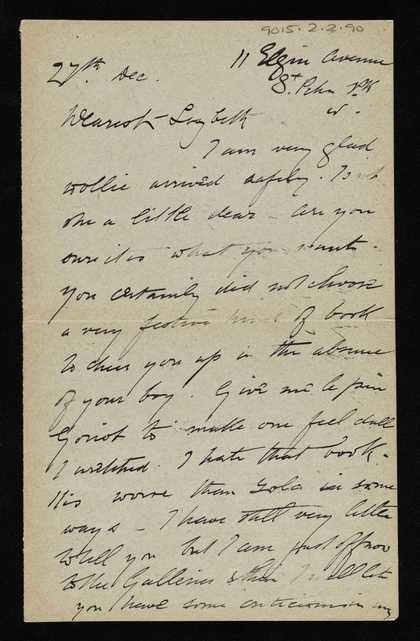 9015.2.2.90
11 Elgin Avenue
27th Dec.
St. Peters Pk
W.
Dearest Lizbeth
I am very glad
Wollie arrived safely. Isnt
she a little dear - Are you
sure it is what you want.
You certainly did not choose
a very festive kind of book
to cheer you up in the absence
of your boy. Give me le père
Goriot to make one feel dull
& wretched. I hate that book.
It is worse than Zola in some
ways - I have still very little
to tell you but I am just off now
to the Galleries & then I will let
you have some criticism in my